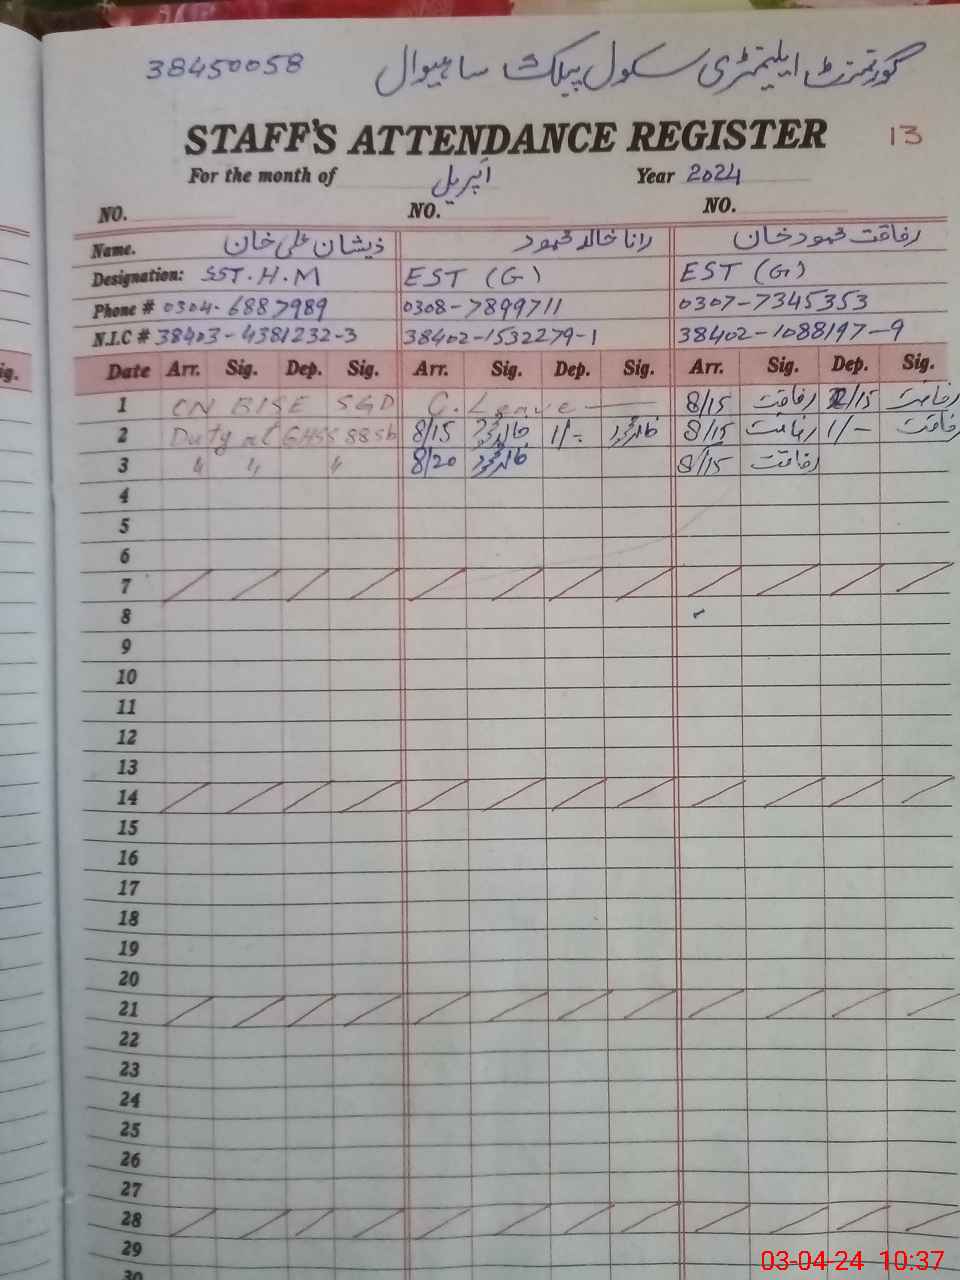 38450058 گورنمنٹ ایلیمنٹری سکول پبلک ساہیوال
STAFF'S ATTENDANCE REGISTER 13
For the month of اپریل Year 2024
NO. NO. NO.
Name. ذیشان علی خان رانا خالد محمود رفاقت محمود خان
Designation: SST.H.M EST (G) EST (G)
Phone # 0304-6887989 0308-7899711 0307-7345353
N.I.C # 38403-4381232-3 38402-1532279-1 38402-1088197-9
ig. Date Arr. Sig. Dep. Sig. Arr. Sig. Dep. Sig. Arr. Sig. Dep. Sig.
1 ON BISE SGD C. Leave 8/15 رفاقت /15 رفاقت
2 Duty at GHSS 88sb 8/15 خالد محمود 1/- خالد محمود 8/15 رفاقت 1/- رفاقت
3 " " " 8/20 خالد محمود 8/15 رفاقت
4
5
6
7
8
9
10
11
12
13
14
15
16
17
18
19
20
21
22
23
24
25
26
27
28
29
30
03-04-24 10:37